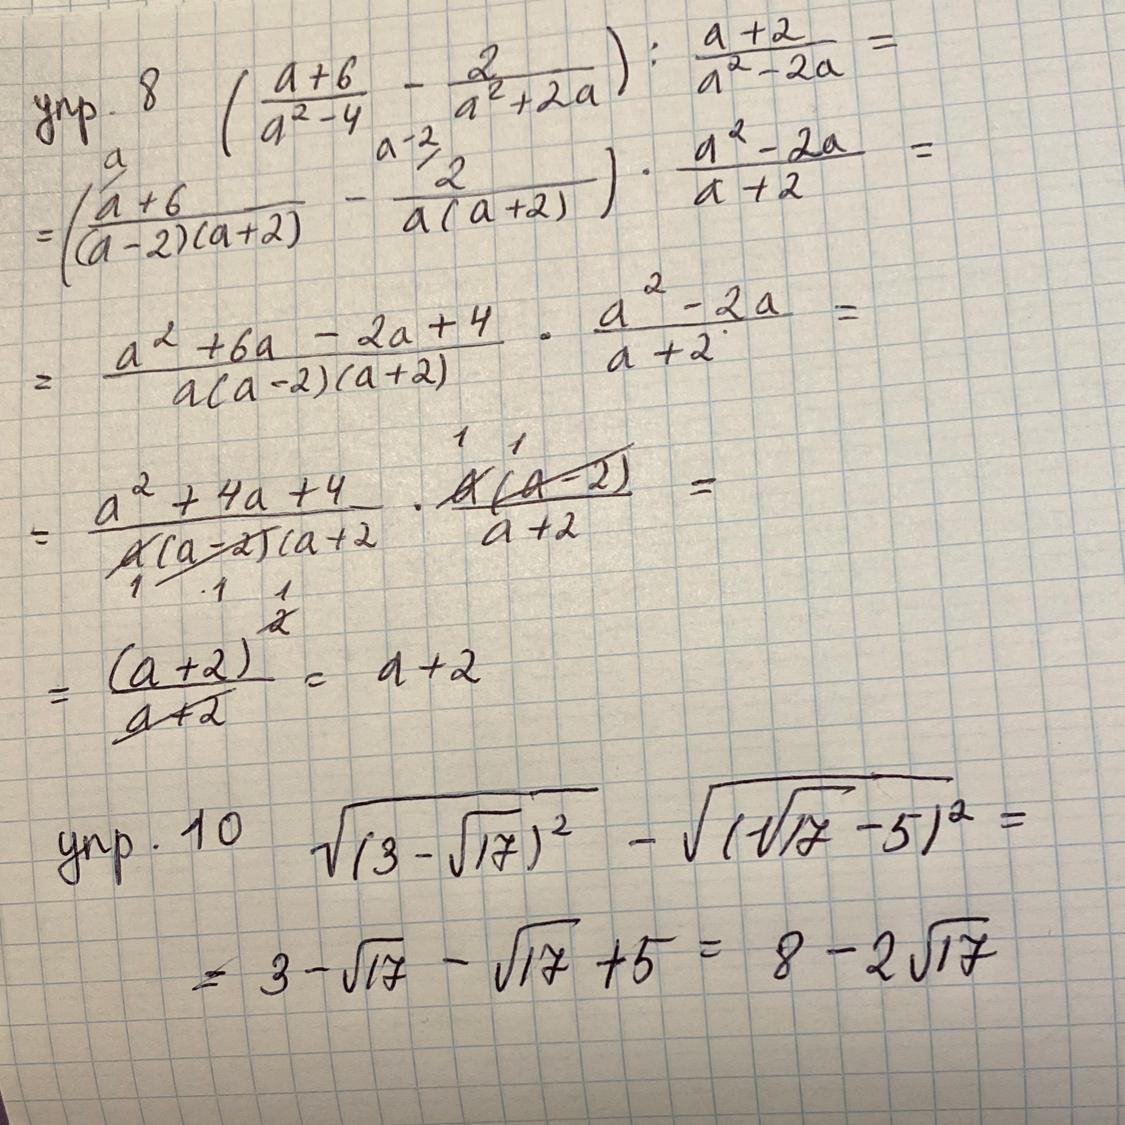 упр. 8 ((a+6)/(a² - 4) - 2/(a² + 2a)) : (a+2)/(a² - 2a) =
a a-2
= ((a+6)/((a-2)(a+2)) - 2/(a(a+2))) · (a² - 2a)/(a+2) =
= (a² + 6a - 2a + 4)/(a(a-2)(a+2)) · (a² - 2a)/(a+2) =
1 1
= (a² + 4a + 4)/(a(a-2)(a+2) · (a(a-2))/(a+2) =
1 1 1
= (a+2)²/(a+2) = a+2
упр. 10 √((3-√17)²) - √((√17 - 5)²) =
= 3 - √17 - √17 + 5 = 8 - 2√17